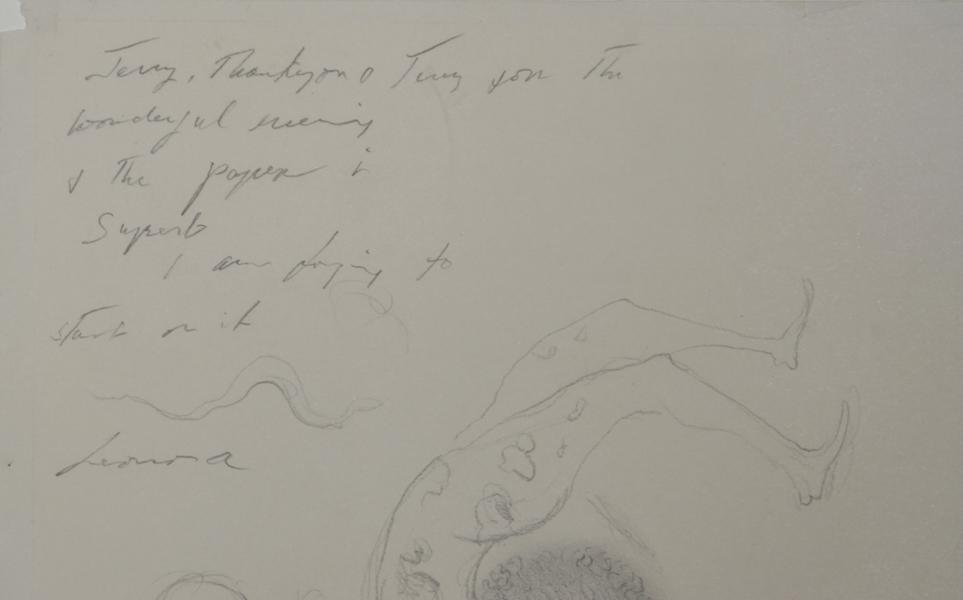 Jerry, Thankyou & Terry for The
wonderful evening
& The paper is
Superb
I am to
start on it
Leonora